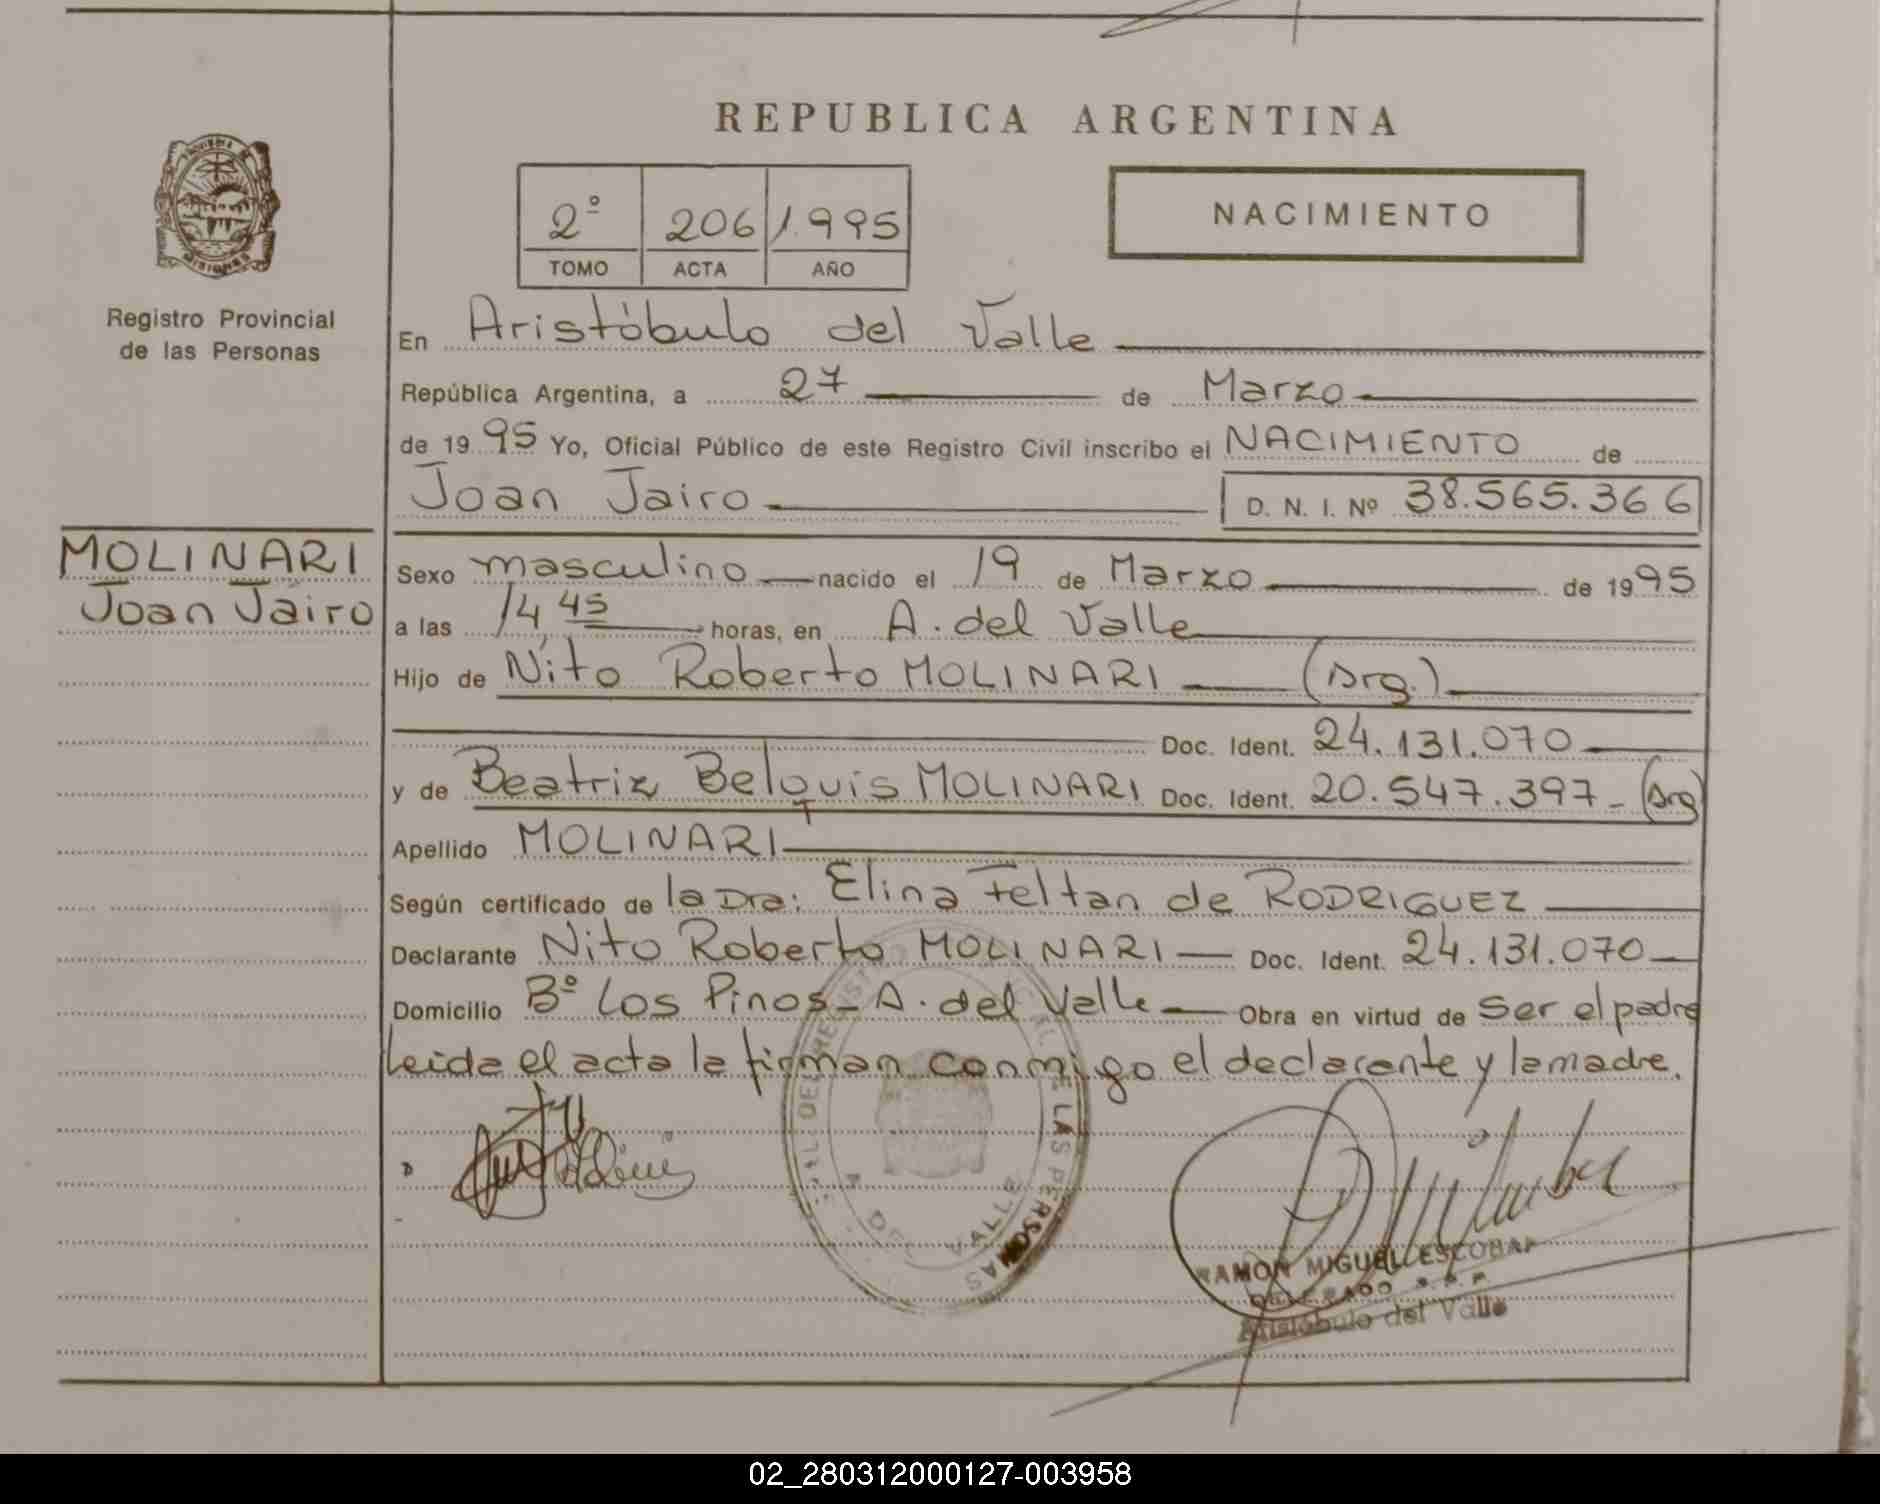 REPUBLICA ARGENTINA
2º 206 1.995
TOMO ACTA AÑO
NACIMIENTO
MISIONES
Registro Provincial
de las Personas
MOLINARI
Joan Jairo
En Aristóbulo del Valle
República Argentina, a 27 de Marzo
de 1995 Yo, Oficial Público de este Registro Civil inscribo el NACIMIENTO de
Joan Jairo D. N. I. Nº 38.565.366
Sexo masculino nacido el 19 de Marzo de 1995
a las 14 45 horas, en A. del Valle
Hijo de Nito Roberto MOLINARI (Arg.)
Doc. Ident. 24.131.070
y de Beatriz Belquis MOLINARI Doc. Ident. 20.547.397 (Arg)
Apellido MOLINARI
Según certificado de la Dra: Elina Feltan de RODRIGUEZ
Declarante Nito Roberto MOLINARI Doc. Ident. 24.131.070
Domicilio Bº Los Pinos - A. del Valle Obra en virtud de ser el padre
Leida el acta la firman conmigo el declarante y la madre.
DE LAS PERSONAS
A. DEL VALLE
RAMON MIGUEL ESCOBAR
Aristóbulo del Valle
02_280312000127-003958